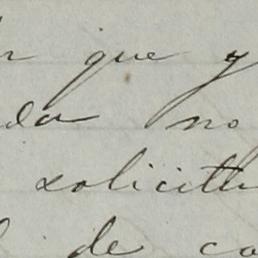 que y
da no
solicitu
de co